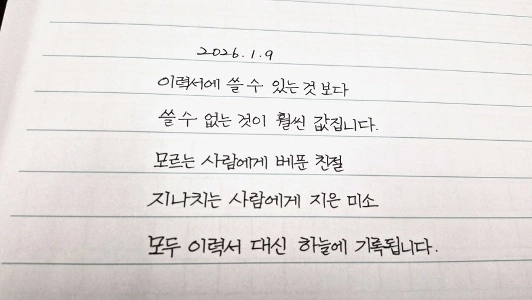 2026.1.9
이력서에 쓸 수 있는 것 보다
쓸 수 없는 것이 훨씬 값집니다.
모르는 사람에게 베푼 친절
지나치는 사람에게 지은 미소
모두 이력서 대신 하늘에 기록됩니다.